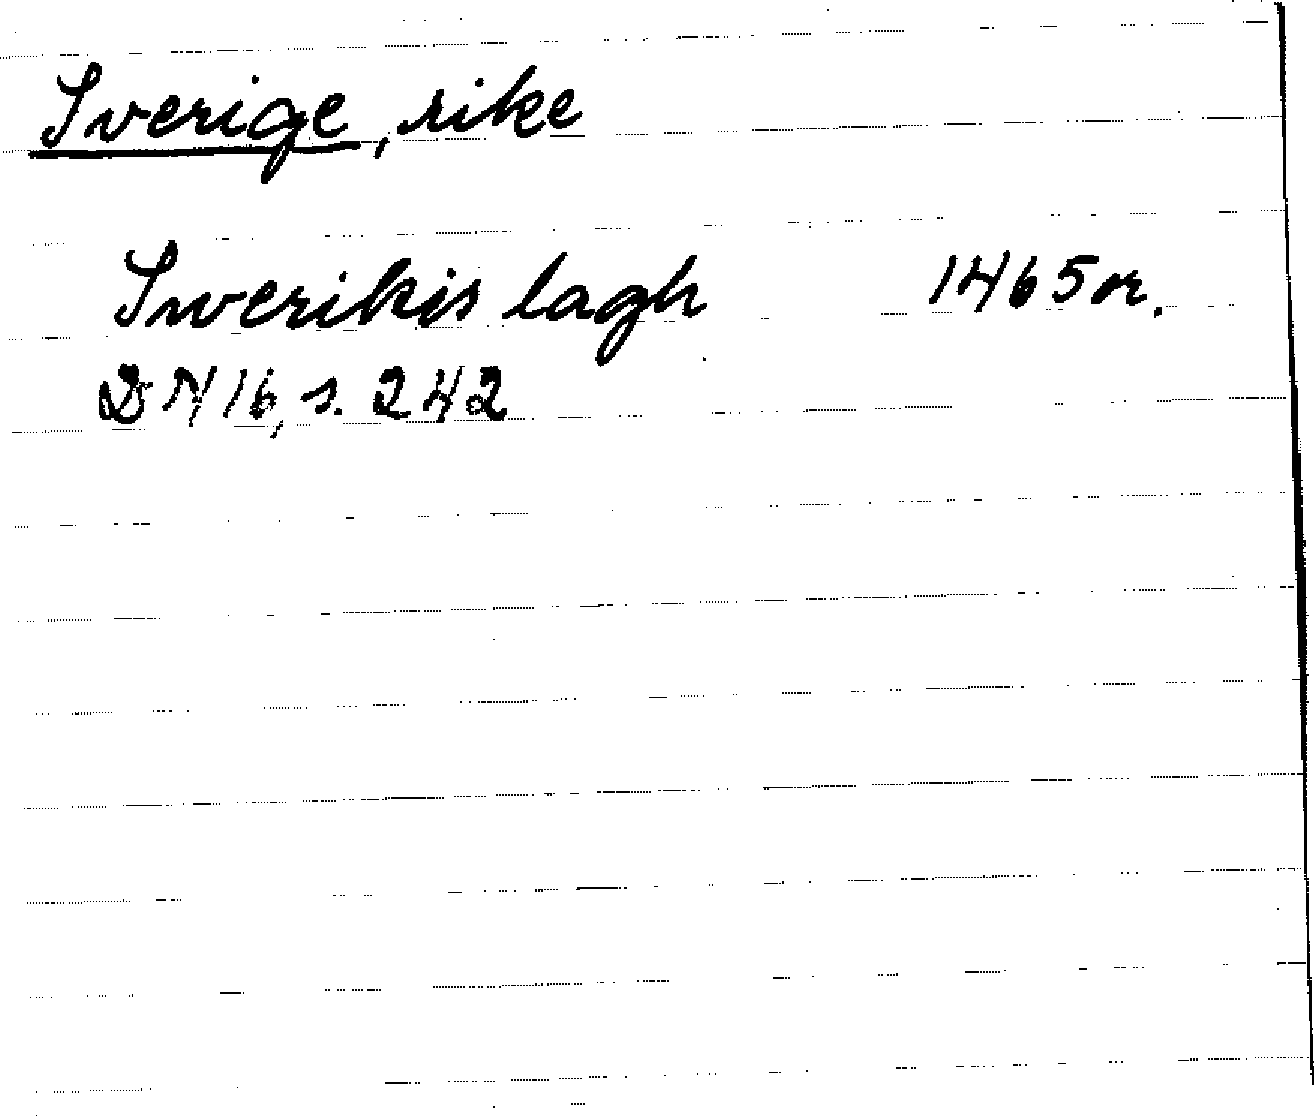 Sverige, rike
Swerikis lagh 1465 or.
DN 16, s. 242